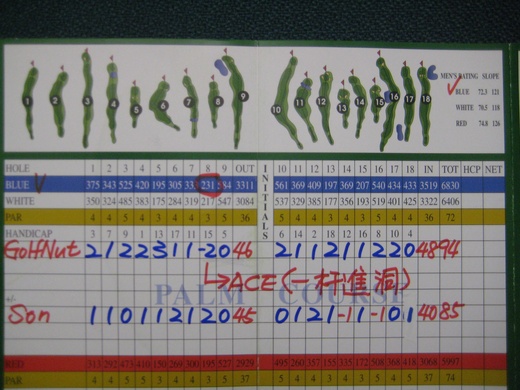 1 2 3 4 5 6 7 8 9 10 11 12 13 14 15 16 17 18
MEN'S RATING SLOPE
BLUE 72.5 121
WHITE 70.5 118
RED 74.8 126
HOLE 1 2 3 4 5 6 7 8 9 OUT INITIALS 10 11 12 13 14 15 16 17 18 IN TOT HCP NET
BLUE V 375 343 525 420 195 305 333 231 584 3311 561 369 409 197 369 207 540 434 433 3519 6830
WHITE 350 324 485 383 175 284 319 217 547 3084 537 329 385 177 356 193 519 401 425 3322 6406
PAR 4 4 5 4 3 4 4 3 5 36 5 4 4 3 4 3 5 4 4 36 72
HANDICAP 3 7 9 1 5 13 17 15 5 6 14 2 18 12 16 10 4 8
GolfNut 2 1 2 2 3 1 1 -2 0 46 2 1 1 2 1 1 2 2 0 48 94
ACE (一杆進洞)
PALM COURSE
+/-
Son 1 1 0 1 1 2 1 2 0 45 0 1 2 1 -1 1 -1 0 1 40 85
RED 313 292 473 410 150 269 300 195 527 2929 495 260 357 155 335 172 508 368 418 3068 5997
PAR 4 4 5 5 3 4 4 3 5 37 5 4 4 3 4 3 5 4 5 37 74